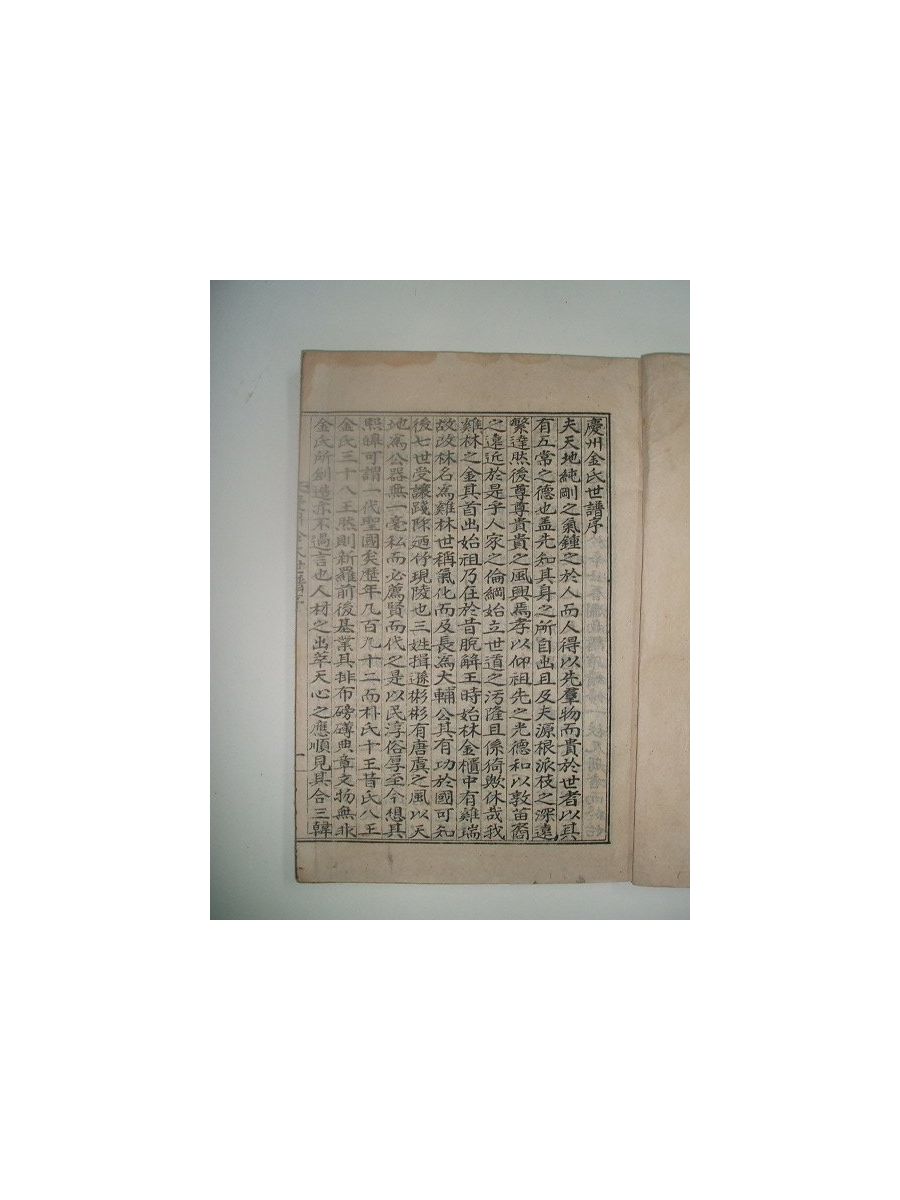 慶州金氏世譜序
夫天地純剛之氣鍾之於人而人得以先羣物而貴於世者以其
有五常之德也盖先知其身之所自出且及夫源根派枝之深遠
繁達然後尊尊貴貴之風興焉孝以仰祖先之光德和以敦苗裔
之遠近於是乎人家之倫綱始立世道之汚隆且係猗歟休哉我
雞林之金其首出始祖乃在於昔脫解王時始林金櫃中有雞瑞
故改林名爲雞林世稱氣化而及長爲大輔公其有功於國可知
後七世受讓踐阼廼伃現陵也三姓揖遜彬彬有唐虞之風以天
地爲公器無一毫私而必薦賢而代之是以民淳俗厚至今想其
熙皥可謂一代聖國矣歷年九百九十二而朴氏十王昔氏八王
金氏三十八王然則新羅前後基業其排布磅礴典章文物無非
金氏所創造亦不過言也人材之出萃天心之應順見其合三韓
一